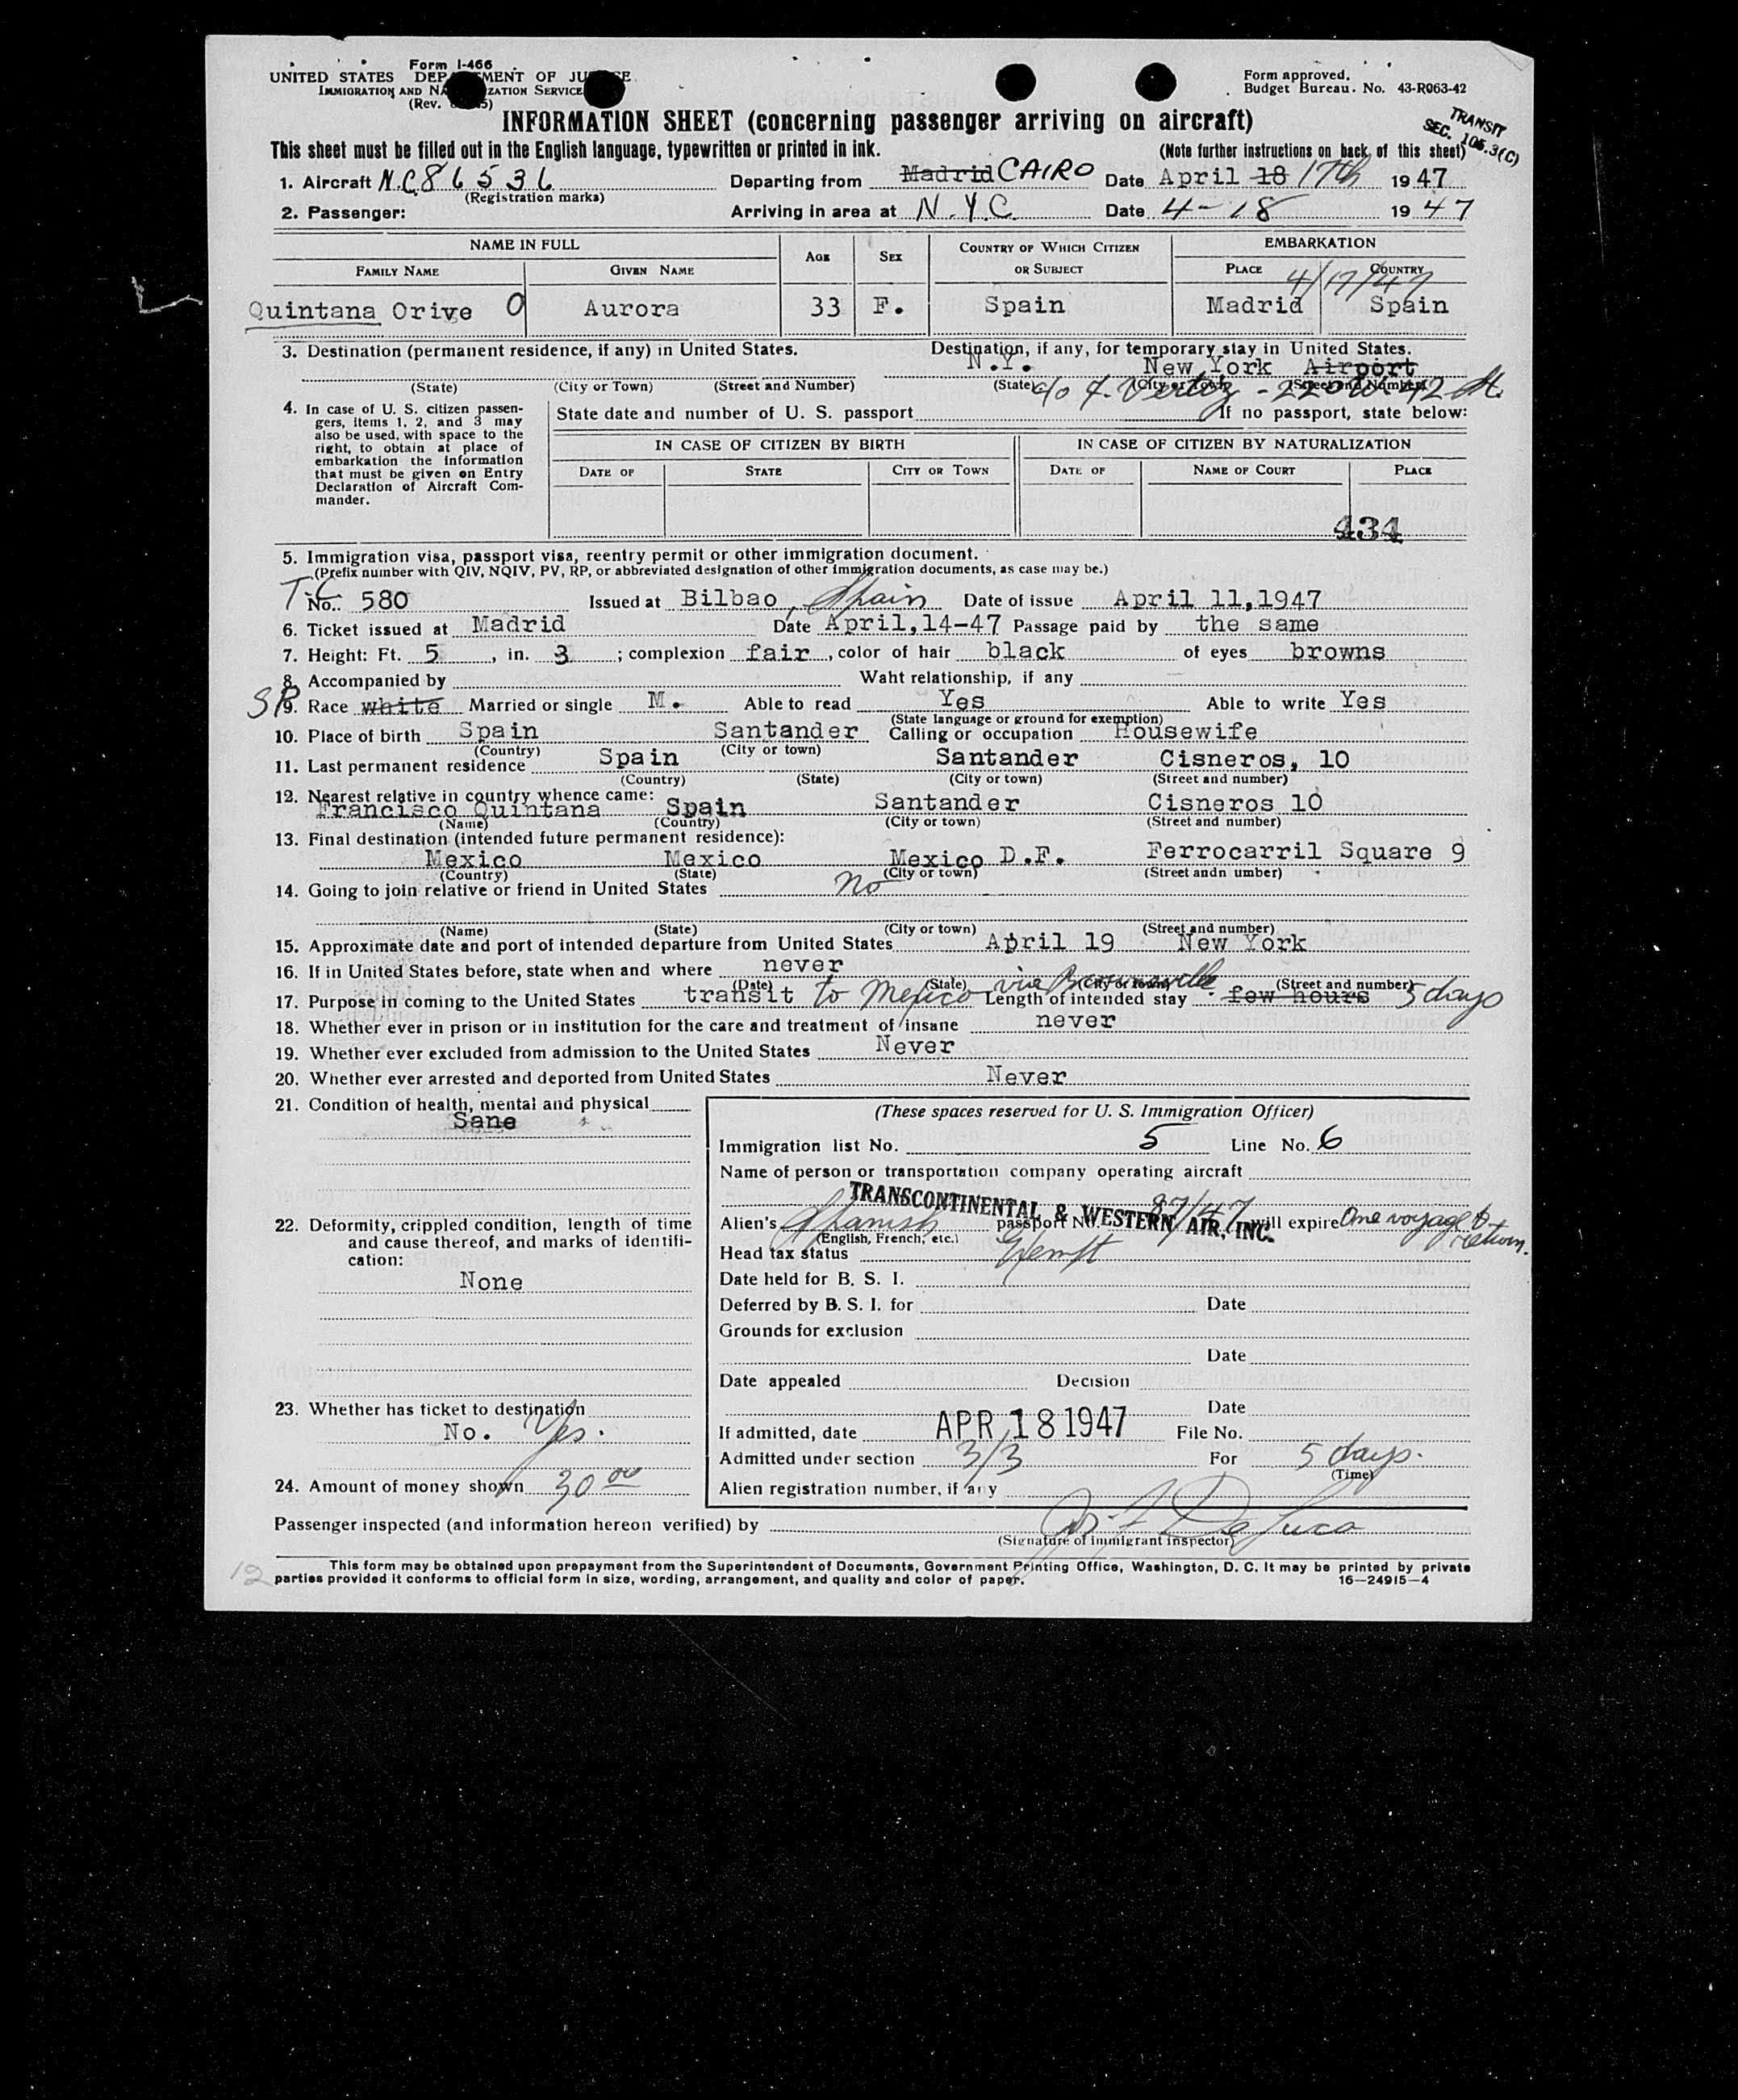 Form I-466
UNITED STATES DEPARTMENT OF JUSTICE
IMMIGRATION AND NATURALIZATION SERVICE
(Rev.
Form approved.
Budget Bureau. No. 43-R063-42
TRANSIT
SEC. 105.3(C)
INFORMATION SHEET (concerning passenger arriving on aircraft)
This sheet must be filled out in the English language, typewritten or printed in ink. (Note further instructions on back of this sheet)
1. Aircraft N.C. 86536 Departing from Madrid CAIRO Date April 18 17th 1947
(Registration marks)
2. Passenger: Arriving in area at N.Y.C. Date 4-18 1947
NAME IN FULL AGE SEX COUNTRY OF WHICH CITIZEN OR SUBJECT EMBARKATION
FAMILY NAME GIVEN NAME PLACE COUNTRY
4/17/47
Quintana Orive O Aurora 33 F. Spain Madrid Spain
3. Destination (permanent residence, if any) in United States. Destination, if any, for temporary stay in United States.
N.Y. New York Airport
(State) (City or Town) (Street and Number) (State) (City or Town) (Street and Number)
c/o F. Vertiz - 220 W. 42 St.
4. In case of U. S. citizen passengers, items 1, 2, and 3 may also be used, with space to the right, to obtain at place of embarkation the information that must be given on Entry Declaration of Aircraft Commander.
State date and number of U. S. passport If no passport, state below:
IN CASE OF CITIZEN BY BIRTH IN CASE OF CITIZEN BY NATURALIZATION
DATE OF STATE CITY OR TOWN DATE OF NAME OF COURT PLACE
434
5. Immigration visa, passport visa, reentry permit or other immigration document.
(Prefix number with QIV, NQIV, PV, RP, or abbreviated designation of other immigration documents, as case may be.)
T.C.
No.. 580 Issued at Bilbao, Spain Date of issue April 11,1947
6. Ticket issued at Madrid Date April,14-47 Passage paid by the same
7. Height: Ft. 5, in. 3; complexion fair, color of hair black of eyes browns
8. Accompanied by Waht relationship, if any
SP
9. Race white Married or single M. Able to read Yes Able to write Yes
(State language or ground for exemption)
10. Place of birth Spain Santander Calling or occupation Housewife
(Country) (City or town)
11. Last permanent residence Spain Santander Cisneros, 10
(Country) (State) (City or town) (Street and number)
12. Nearest relative in country whence came:
Francisco Quintana Spain Santander Cisneros 10
(Name) (Country) (City or town) (Street and number)
13. Final destination (intended future permanent residence):
Mexico Mexico Mexico D.F. Ferrocarril Square 9
(Country) (State) (City or town) (Street andn umber)
14. Going to join relative or friend in United States no
(Name) (State) (City or town) (Street and number)
15. Approximate date and port of intended departure from United States April 19 New York
16. If in United States before, state when and where never
(Date) (State) (City or town) (Street and number)
17. Purpose in coming to the United States transit to Mexico via Brownsville. Length of intended stay few hours 5 days
18. Whether ever in prison or in institution for the care and treatment of insane never
19. Whether ever excluded from admission to the United States Never
20. Whether ever arrested and deported from United States Never
21. Condition of health, mental and physical
Sane
22. Deformity, crippled condition, length of time and cause thereof, and marks of identification:
None
23. Whether has ticket to destination
No. Yes.
24. Amount of money shown 30 00
(These spaces reserved for U. S. Immigration Officer)
Immigration list No. 5 Line No. 6
Name of person or transportation company operating aircraft
TRANSCONTINENTAL & WESTERN AIR, INC.
Alien's Spanish passport No. 87/47 will expire One voyage & return.
(English, French, etc.)
Head tax status Exempt
Date held for B. S. I.
Deferred by B. S. I. for Date
Grounds for exclusion
Date
Date appealed Decision
Date
If admitted, date APR 18 1947 File No.
Admitted under section 3/3 For 5 days.
(Time)
Alien registration number, if any
Passenger inspected (and information hereon verified) by De Luca
(Signature of immigrant inspector)
12
This form may be obtained upon prepayment from the Superintendent of Documents, Government Printing Office, Washington, D. C. It may be printed by private
parties provided it conforms to official form in size, wording, arrangement, and quality and color of paper. 16—24915-4